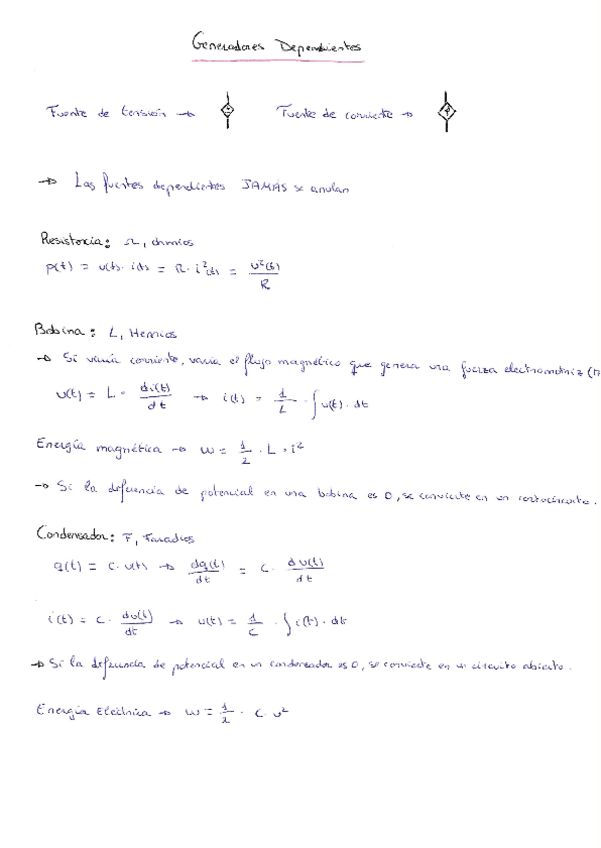 Generadores Dependientes
Fuente de tensión → Fuente de corriente →
→ Las fuentes dependientes JAMÁS se anulan
Resistencia: Ω, ohmios
p(t) = u(t) · i(t) = R · i²(t) = u²(t)/R
Bobina: L, Henrios
→ Si varía corriente, varía el flujo magnético que genera una fuerza electromotriz
u(t) = L · di(t)/dt → i(t) = 1/L · ∫ u(t) · dt
Energía magnética → w = 1/2 · L · i²
→ Si la diferencia de potencial en una bobina es 0, se convierte en un cortocircuito.
Condensador: F, Faradios
q(t) = C · u(t) → dq(t)/dt = C · du(t)/dt
i(t) = C · du(t)/dt → u(t) = 1/C · ∫ i(t) · dt
→ Si la diferencia de potencial en un condensador es 0, se convierte en un circuito abierto.
Energía Eléctrica → w = 1/2 · C · u²